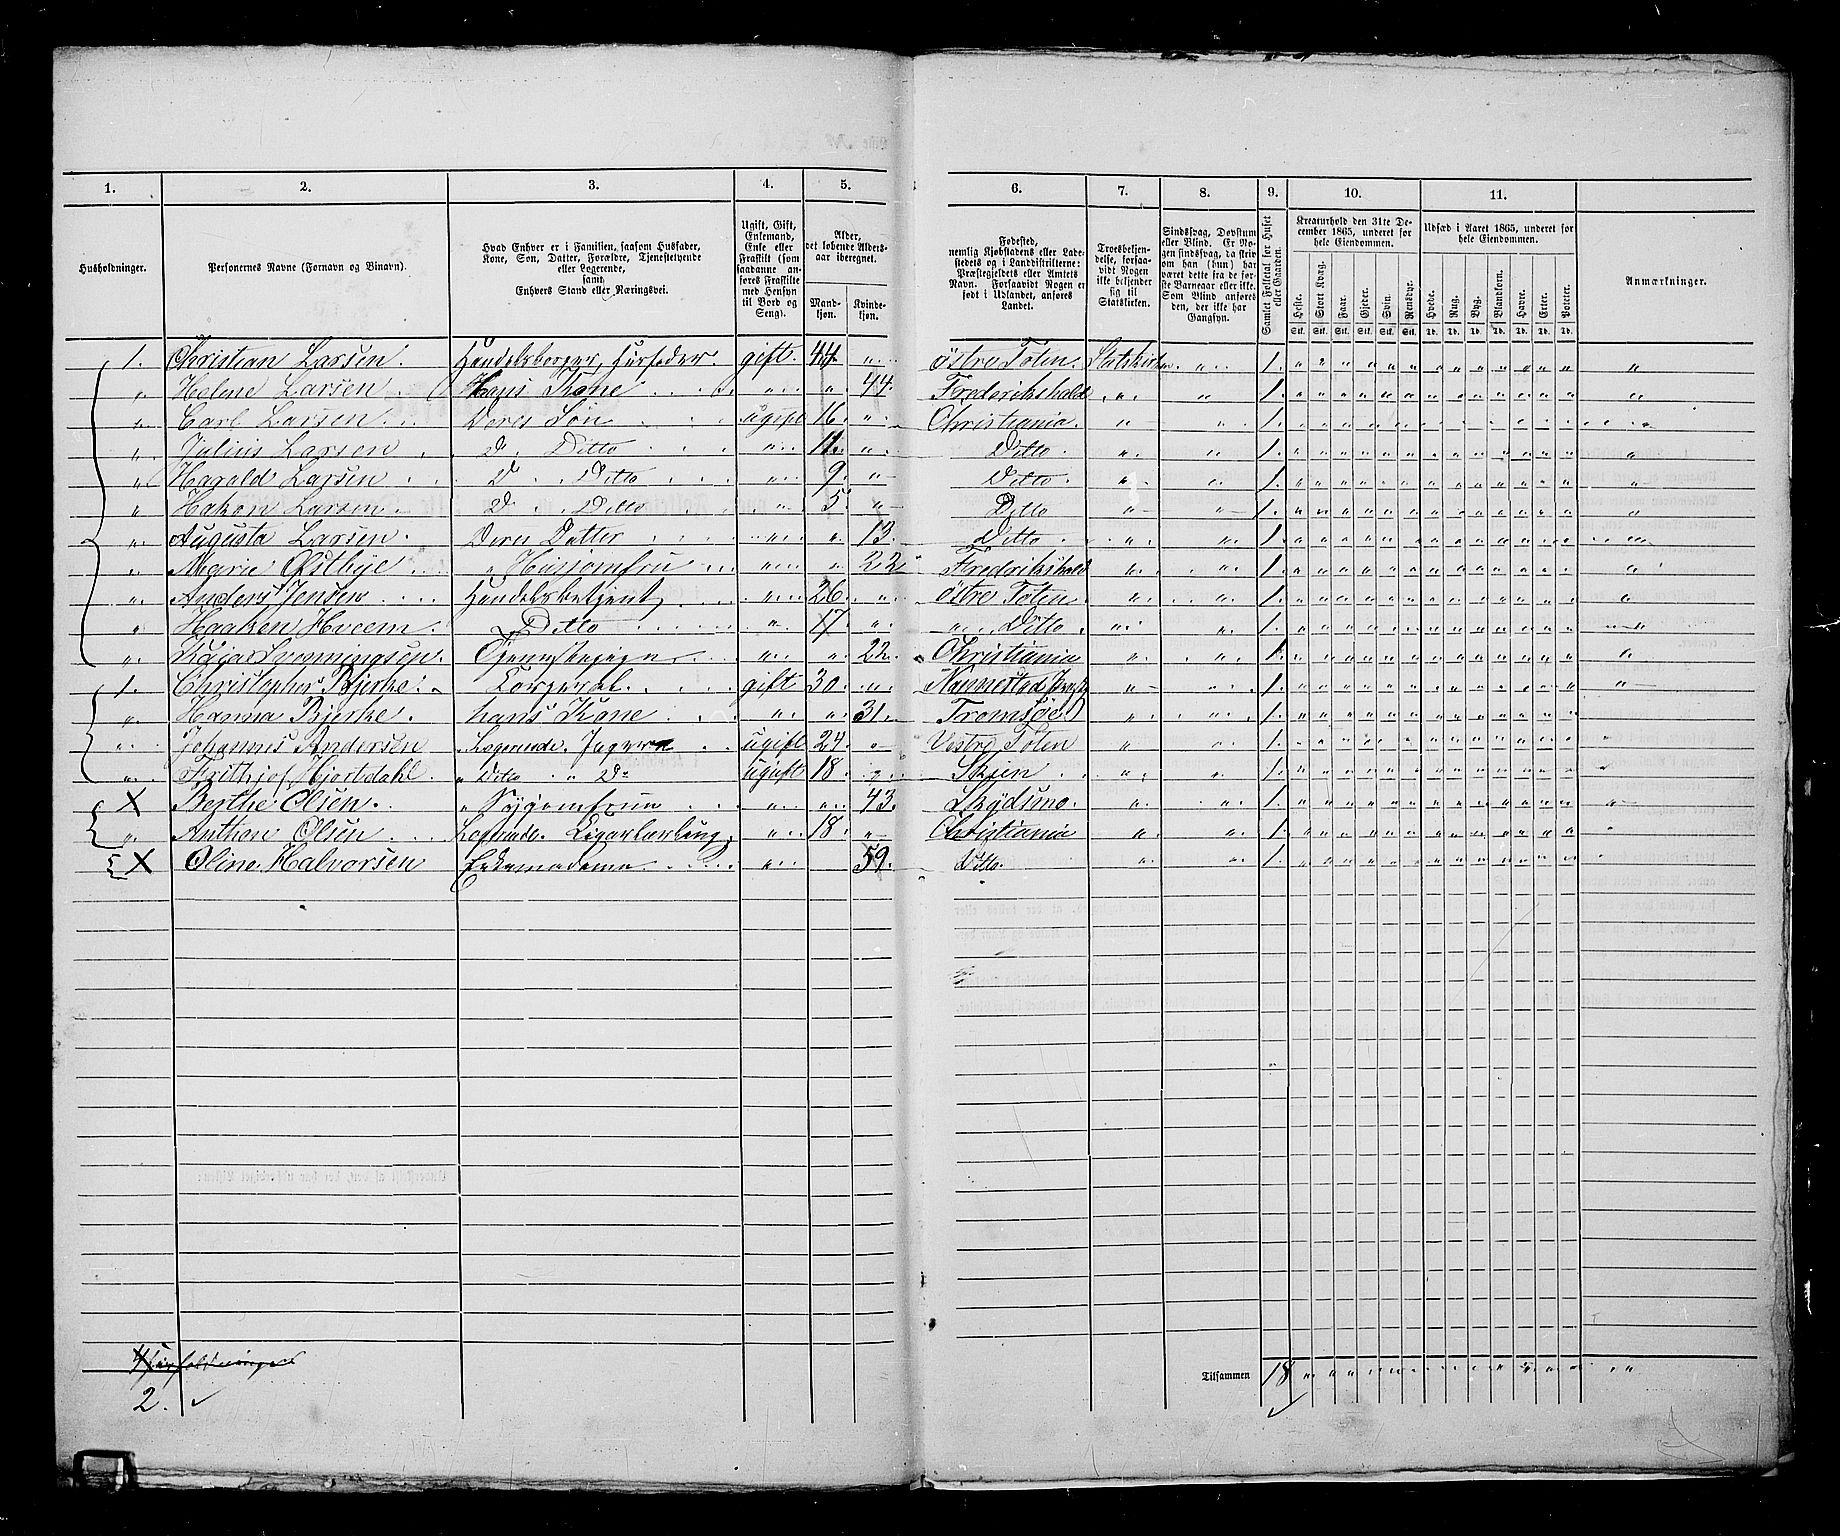 1. 2. 3. 4. 5. 6. 7. 8. 9. 10. 11.
Husholdninger.
Personernes Navne (Fornavn og Binavn).
Hvad Enhver er i Familien, saasom Husfader, Kone, Søn, Datter, Forældre, Tjenestetyende eller Logerende, samt Enhvers Stand eller Næringsvei.
Ugift, Gift, Enkemand, Enke eller Fraskilt (som saadanne anføres Fraskilte med Hensyn til Bord og Seng).
Alder, det løbende Aldersaar iberegnet.
Mandkjøn. Kvindekjøn.
Fødested, nemlig Kjøbstadens eller Ladestedets og i Landdistrikterne: Præstegjeldets eller Amtets Navn. Forsaavidt Nogen er født i Udlandet, anføres Landet.
Troesbekjendelse, forsaavidt Nogen ikke bekjender sig til Statskirken.
Sindssvag, Døvstum eller Blind. Er Nogen sindssvag, da skrives om han (hun) har været dette fra de første Barneaar eller ikke. Som Blind anføres den, der ikke har Gangsyn.
Samlet Folketal for Huset eller Gaarden.
Kreaturhold den 31te December 1865, underet for hele Eiendommen.
Heste. Stort Kvæg. Faar. Gjeder. Svin. Rensdyr.
Stk. Stk. Stk. Stk. Stk. Stk.
Udsæd i Aaret 1865, underet for hele Eiendommen.
Hvede. Rug. Byg. Blandkorn. Havre. Erter. Poteter.
Td. Td. Td. Td. Td. Td. Td.
Anmærkninger.
1. Christian Larsen. Handelsborger, Husfader gift 44 „ Østre Toten. Statskirken „ 1. „
„ Helene Larsen Hans Kone „ „ 44. Frederikshald „ „ 1. „
„ Carl Larsen Deres Søn ugift 16. „ Christiania. „ „ 1. „
„ Julius Larsen D Ditto „ 11. „ Ditto „ „ 1. „
„ Harald Larsen D Ditto „ 9. „ Ditto „ „ 1. „
„ Hakon Larsen D Ditto „ 5. „ Ditto „ „ 1. „
„ Augusta Larsen. Deres Datter „ „ 13. Ditto „ „ 1. „
„ Marie Østbye „ Husjomfru „ „ 22 Frederikshald „ „ 1. „
„ Anders Jensen Handelsbetjent „ 26. „ Østre Toten „ „ 1. „
„ Haaken Hveem. Ditto „ 17. „ „ Ditto „ „ 1. „
„ Kaja Svenningsen. Tjenestepige „ „ 22. Christiania „ „ 1. „
1. Christopher Bjerke. gift 30. „ Nannestad „ „ 1. „
„ Hanna Bjerke. hans Kone „ „ 31. Tromsøe „ „ 1. „
„ Johannes Andersen Logerende. ugift 24. „ Vestre Toten „ „ 1. „
„ Frithjof Hjortdahl. „ Ditto „ Do ugift 18. „ Skien „ „ 1. „
X Berthe Olsen. „ Syjomfrue „ „ 43. Skydsmo. „ „ 1. „
„ Anthon Olsen Logerende. „ 18. „ Christiania „ „ 1. „
X Oline Halvorsen Enkemadame „ „ 59. Ditto. „ „ 1. „
Tilsammen 18
4 Husholdninger
2.